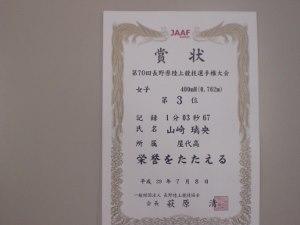 JAAF
賞状
第70回長野県陸上競技選手権大会
女子 400mH(0.762m)
第3位
記録 1分03秒67
氏名 山崎 璃央
所属 屋代高
栄誉をたたえる
平成 29年 7月 8日
一般財団法人 長野陸上競技協会
会長 萩原 清